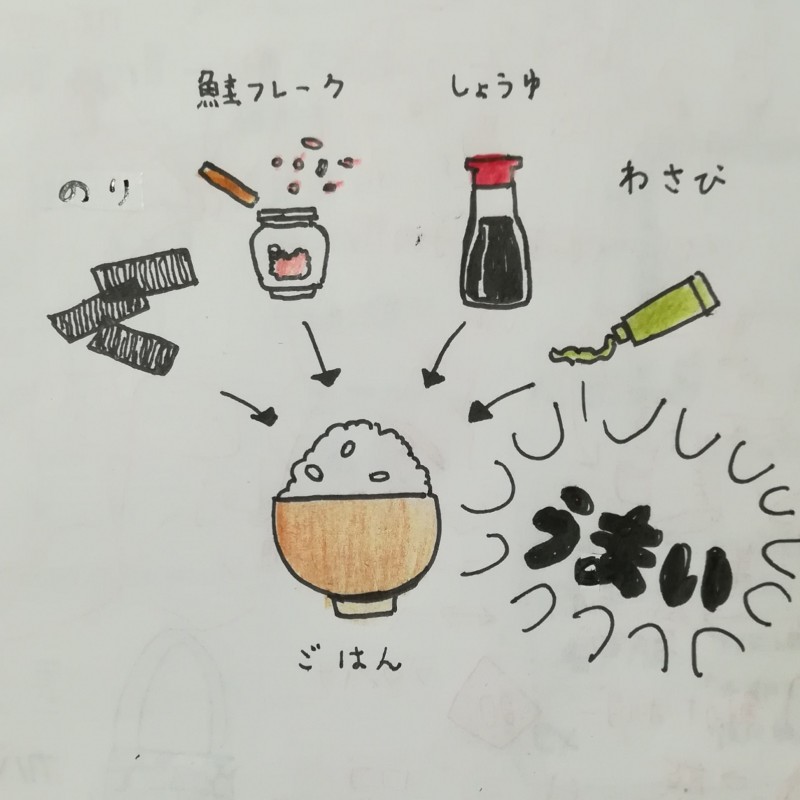 鮭フレーク
しょうゆ
のり
わさび
うまい
ごはん